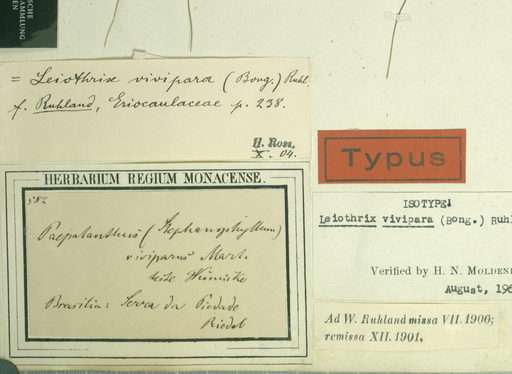 SCHE
AMMLUNG
EN
= Leiothrix vivipara (Bong.) Ruhl
f. Ruhland, Eriocaulaceae p. 238.
H. Ross.
X. 04.
Typus
HERBARIUM REGIUM MONACENSE.
582
Paepalanthus (Stephanophyllum)
viviparus Mart.
teste Körnicke
Brasilia: Serra da Piedade
Riedel
ISOTYPE:
Leiothrix vivipara (Bong.) Ruhl
Verified by H. N. MOLDEN
August, 196
Ad W. Ruhland missa VII. 1900;
remissa XII. 1901,